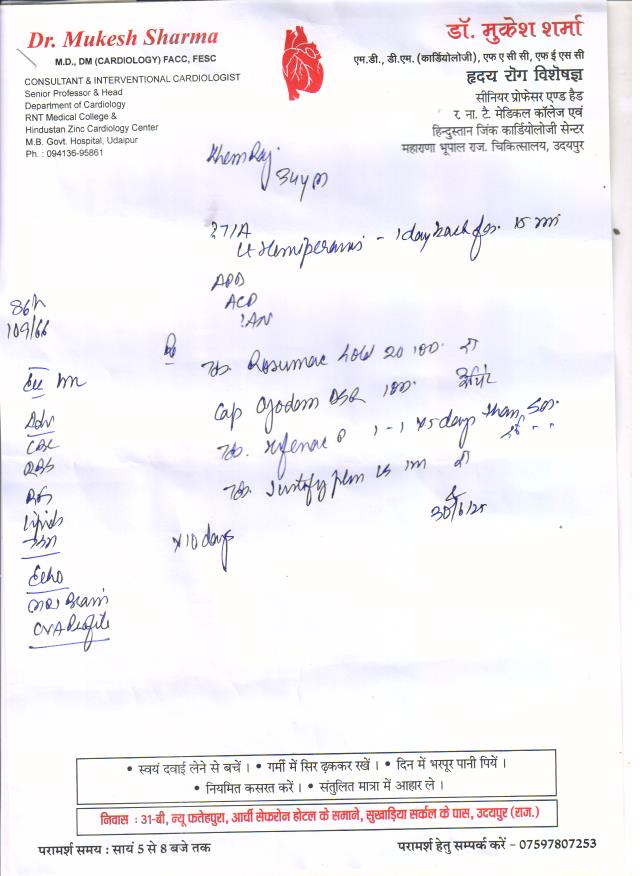 Dr. Mukesh Sharma
M.D., DM (CARDIOLOGY) FACC, FESC
CONSULTANT & INTERVENTIONAL CARDIOLOGIST
Senior Professor & Head
Department of Cardiology
RNT Medical College &
Hindustan Zinc Cardiology Center
M.B. Govt. Hospital, Udaipur
Ph. : 094136-95861
डॉ. मुकेश शर्मा
एम.डी., डी.एम. (कार्डियोलॉजी), एफ ए सी सी, एफ ई एस सी
हृदय रोग विशेषज्ञ
सीनियर प्रोफेसर एण्ड हैड
र. ना. टै. मेडिकल कॉलेज एवं
हिन्दुस्तान जिंक कार्डियोलॉजी सेन्टर
महाराणा भूपाल राज. चिकित्सालय, उदयपुर
Khem Raj
34y m
?TIA
- 1 day back for 15 min
86/m
109/66
Adv
CBC
RBS
Lipids
Echo
MRI Brain
CVA Profile
Rx
Tab. Rosumac Gold 20 100.
Cap DSR 100.
Tab. P 1-1 x 5 days then SOS.
Tab.
30/6/25
x 10 days
• स्वयं दवाई लेने से बचें । • गर्मी में सिर ढ़ककर रखें । • दिन में भरपूर पानी पियें ।
• नियमित कसरत करें । • संतुलित मात्रा में आहार ले ।
निवास : 31-बी, न्यू फतेहपुरा, आर्ची सेफरोन होटल के समाने, सुखाड़िया सर्कल के पास, उदयपुर (राज.)
परामर्श समय : सायं 5 से 8 बजे तक
परामर्श हेतु सम्पर्क करें - 07597807253